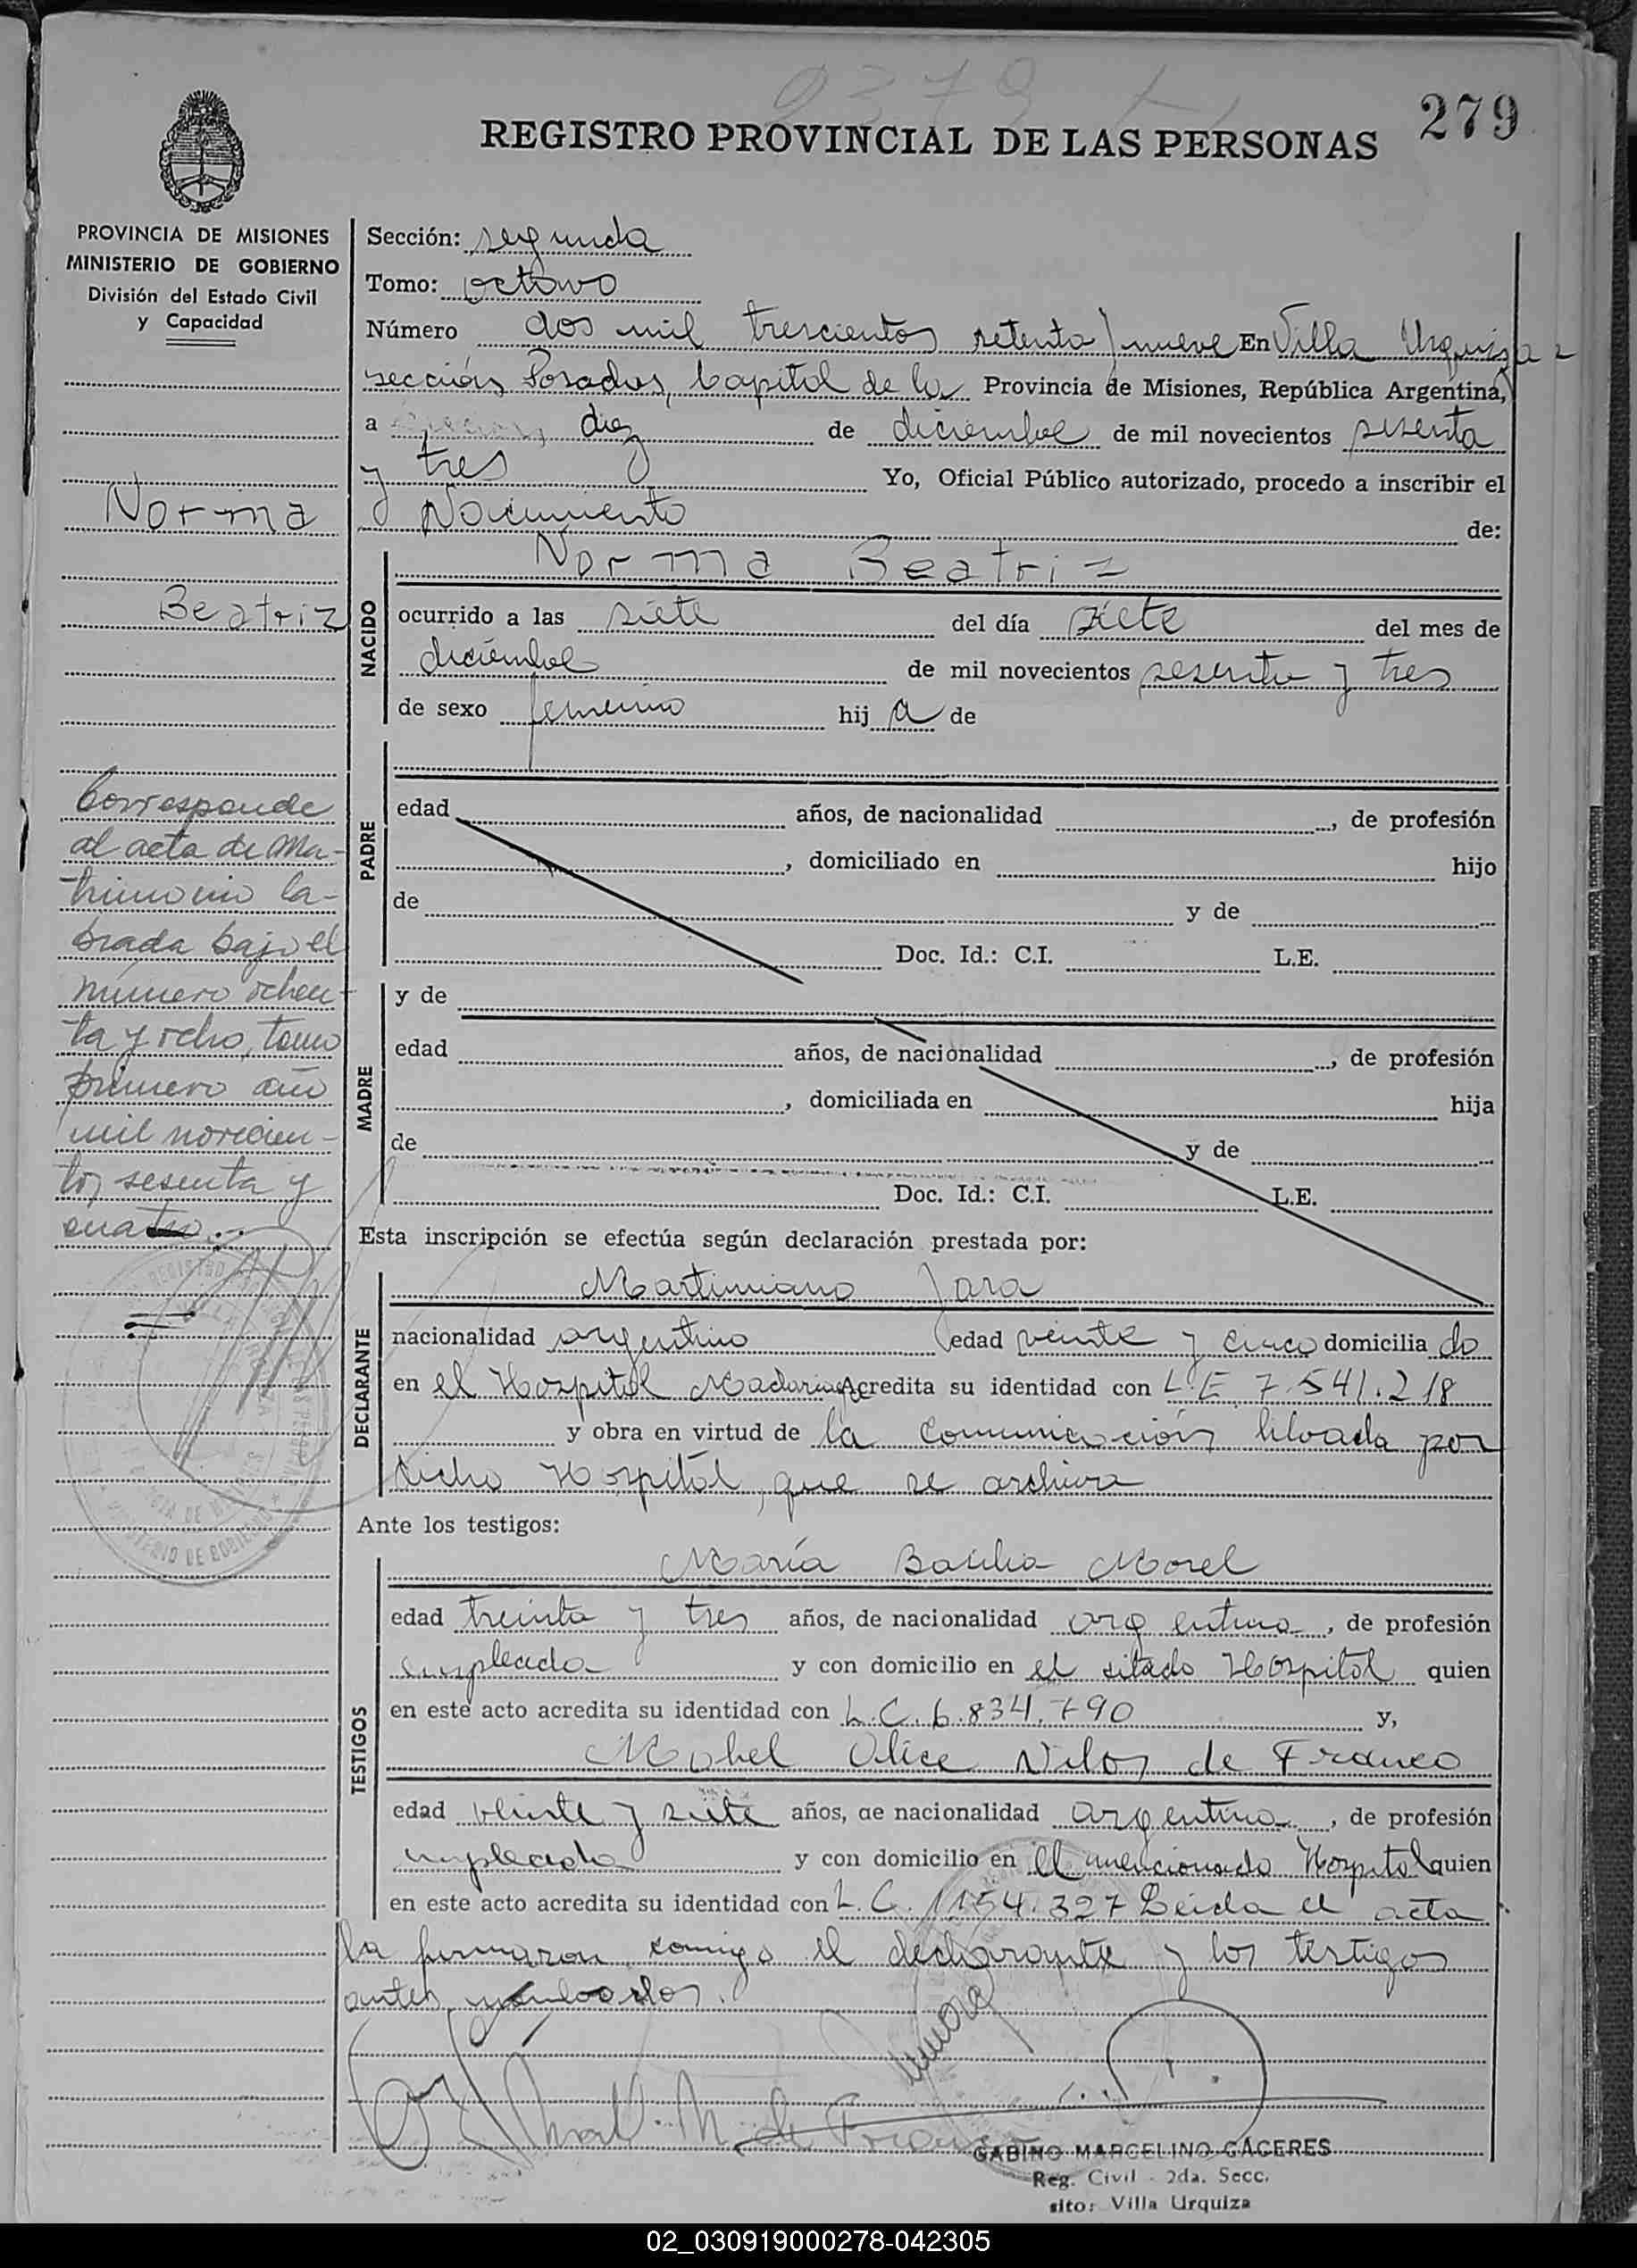 2379
279
REGISTRO PROVINCIAL DE LAS PERSONAS
PROVINCIA DE MISIONES
MINISTERIO DE GOBIERNO
División del Estado Civil
y Capacidad
Norma
Beatriz
Corresponde
al acta de Ma-
trimonio la-
brada bajo el
número ochen-
ta y ocho, tomo
primero año
mil novecien-
tos sesenta y
cuatro.
Sección: segunda
Tomo: octavo
Número dos mil trescientos setenta y nueve En Villa Urquiza 2
sección Posadas, Capital de la Provincia de Misiones, República Argentina,
a diez de diciembre de mil novecientos sesenta
y tres Yo, Oficial Público autorizado, procedo a inscribir el
Nacimiento de:
NACIDO
Norma Beatriz
ocurrido a las siete del día siete del mes de
diciembre de mil novecientos sesenta y tres
de sexo femenino hij a de
PADRE
edad años, de nacionalidad , de profesión
, domiciliado en hijo
de y de
Doc. Id.: C.I. L.E.
MADRE
y de
edad años, de nacionalidad , de profesión
, domiciliada en hija
de y de
Doc. Id.: C.I. L.E.
Esta inscripción se efectúa según declaración prestada por:
DECLARANTE
Martimiano Jara
nacionalidad argentino edad veinte y cinco domicilia do
en el Hospital Madariaga Acredita su identidad con L.E 7.541.218
y obra en virtud de la comunicación librada por
dicho Hospital, que se archiva
Ante los testigos:
TESTIGOS
María Basilia Morel
edad treinta y tres años, de nacionalidad argentina, de profesión
empleada y con domicilio en el sitado Hospital quien
en este acto acredita su identidad con L.C. 6.834.790 y,
Mabel Alice de Franco
edad veinte y siete años, de nacionalidad argentina, de profesión
empleada y con domicilio en el mencionado Hospital quien
en este acto acredita su identidad con L.C. 1154.327 Leida el acta
la firmaron comigo el declarante y los testigos
antes nombrados.
GABINO MARCELINO CACERES
Reg. Civil - 2da. Secc.
sito: Villa Urquiza
02_030919000278-042305